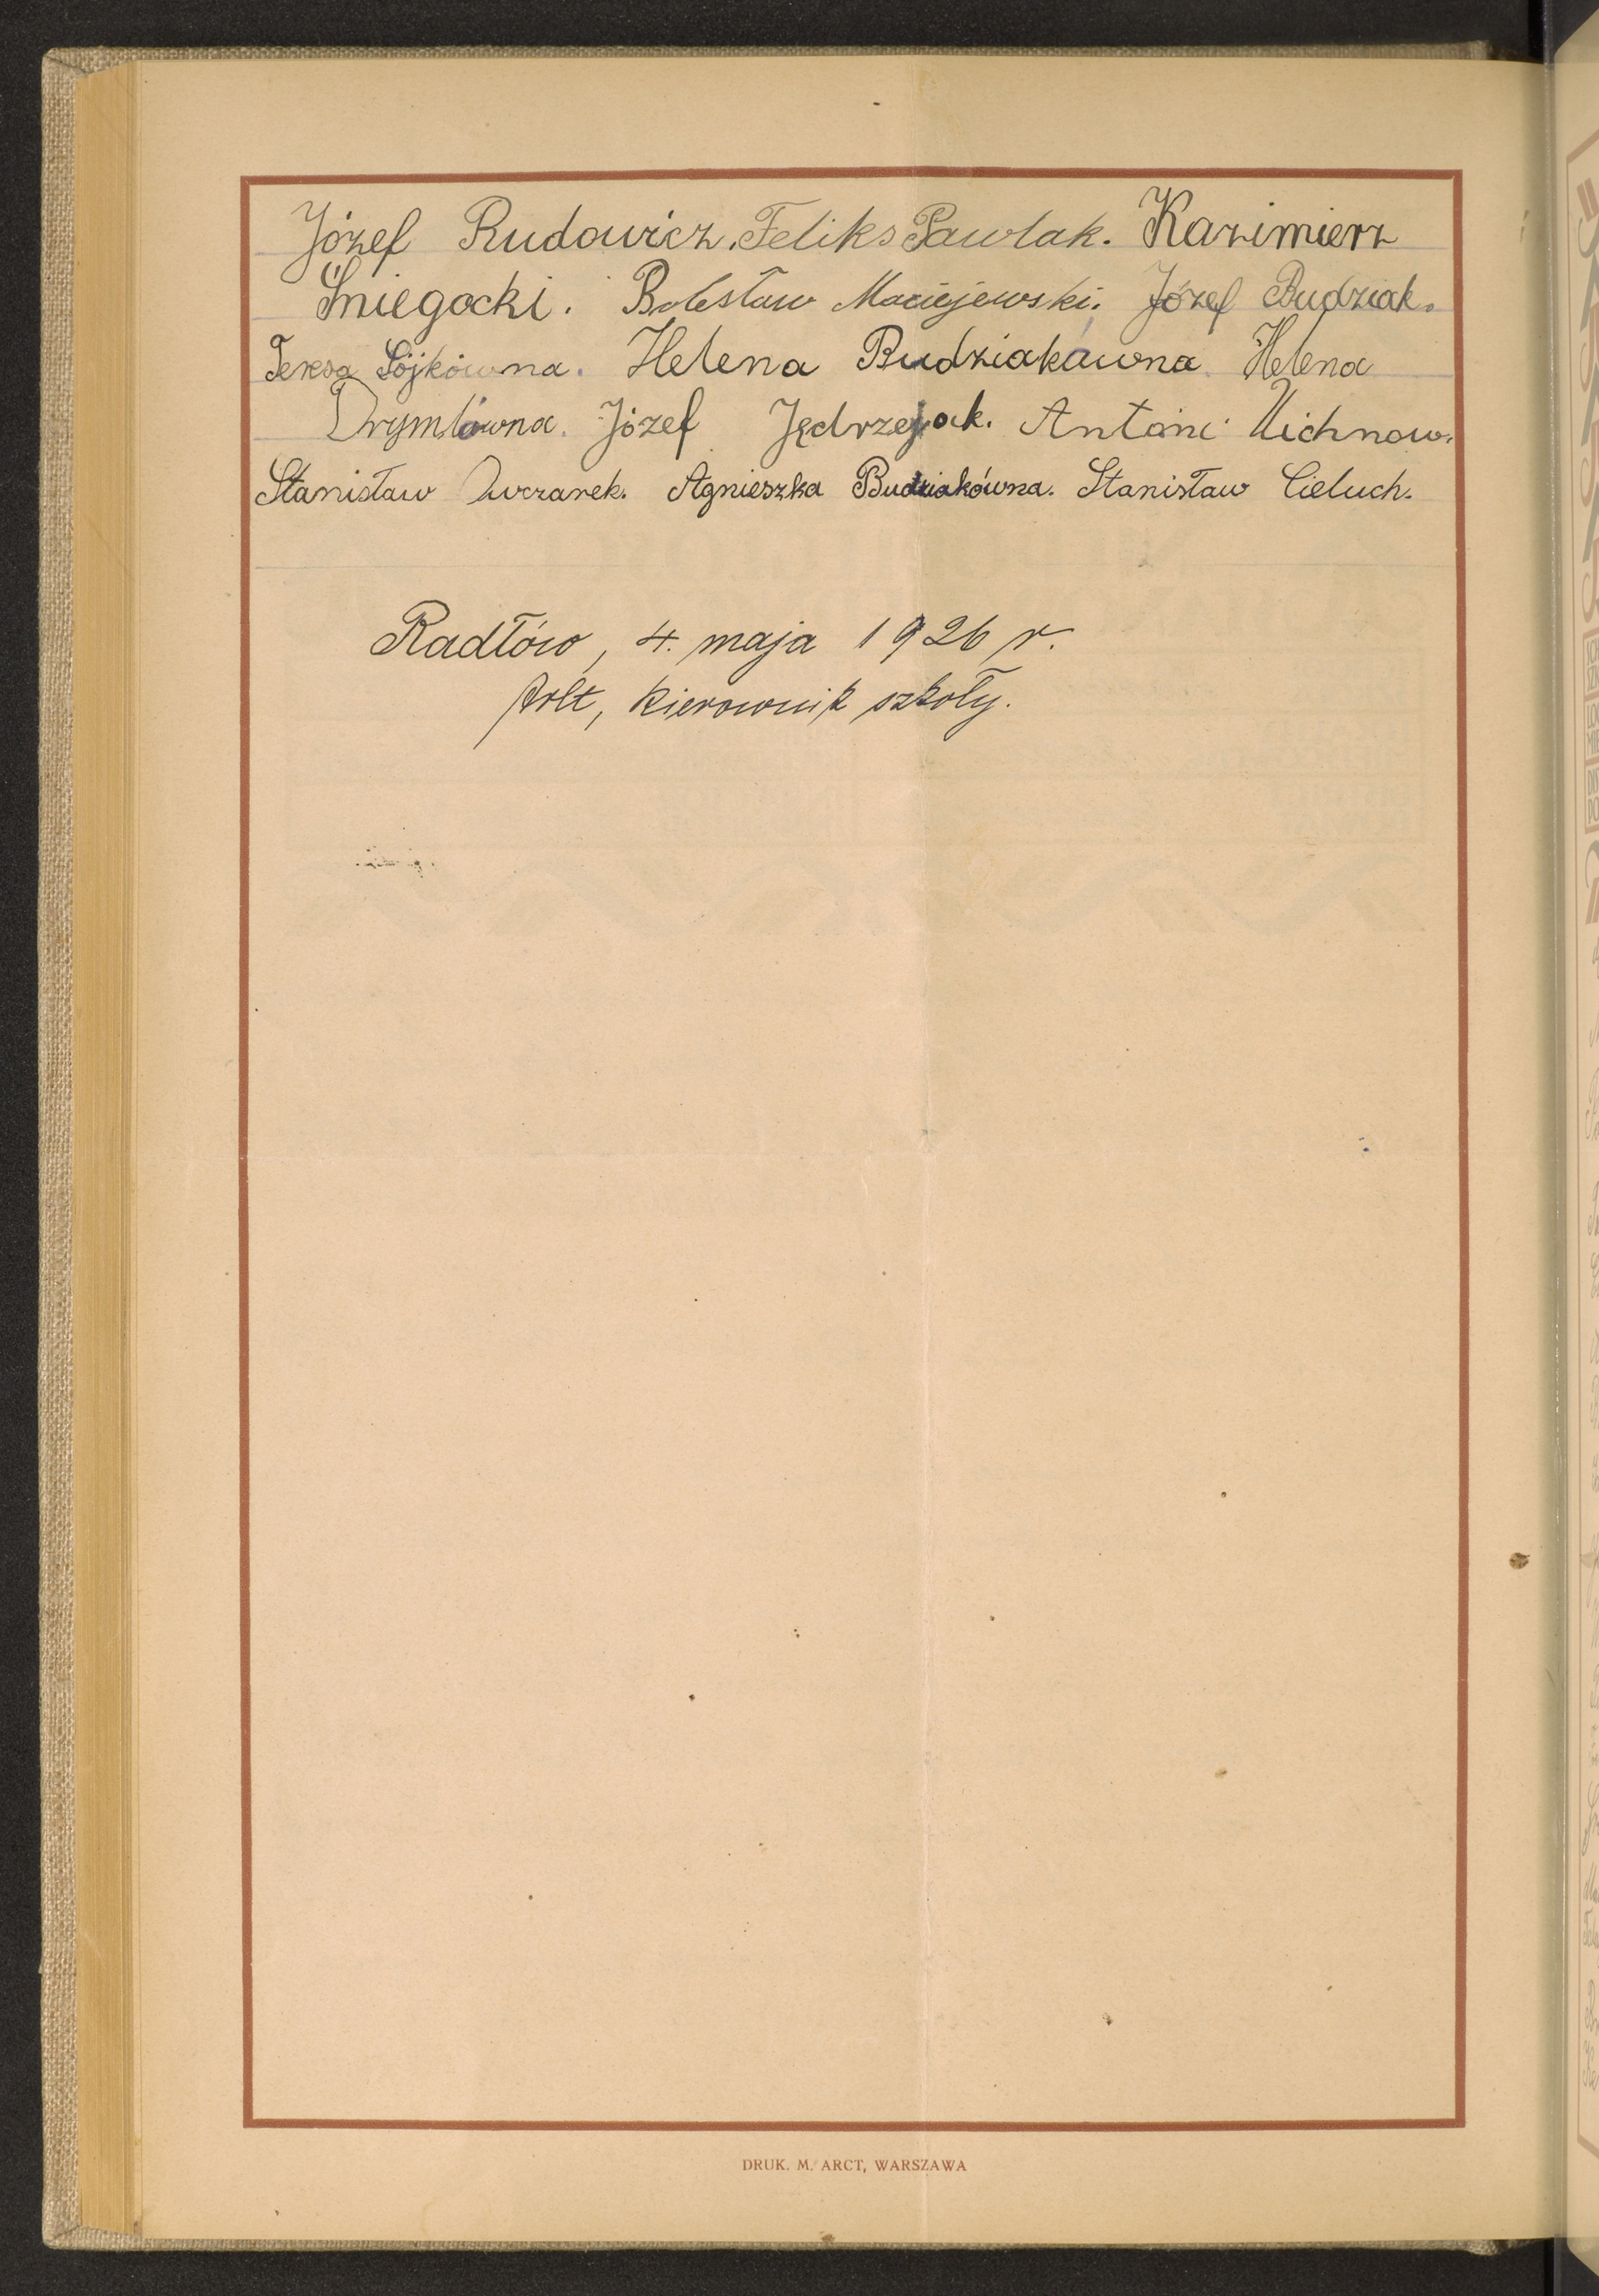 Józef Rudowicz. Feliks Pawlak. Kazimierz
Śniegocki. Bolesław Maciejewski. Józef Budziak.
Teresa Sójkówna. Helena Budziakówna. Helena
Drymlówna. Józef Jędrzejak. Antoni Uichnow.
Stanisław Owczarek. Agnieszka Budziakówna. Stanisław Cieluch.
Radłów, 4. maja 1926 r.
kierownik szkoły.
DRUK. M. ARCT, WARSZAWA